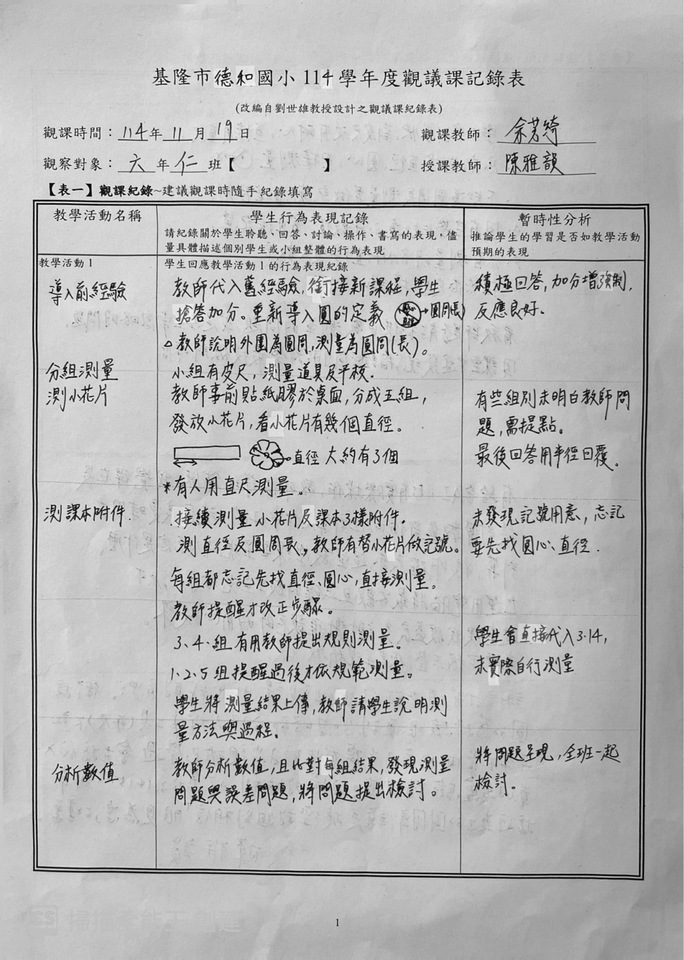 基隆市德和國小 114 學年度觀議課記錄表
(改編自劉世雄教授設計之觀議課紀錄表)
觀課時間：114年 11 月 19日 觀課教師：余芳綺
觀察對象：六 年 仁 班【 】 授課教師：陳雅韻
【表一】觀課紀錄~建議觀課時隨手紀錄填寫
教學活動名稱
學生行為表現記錄
請紀錄關於學生聆聽、回答、討論、操作、書寫的表現，儘
量具體描述個別學生或小組整體的行為表現
暫時性分析
推論學生的學習是否如教學活動
預期的表現
教學活動 1
導入前經驗
學生回應教學活動 1 的行為表現紀錄
教師代入舊經驗，銜接新課程，學生
搶答加分。重新導入圓的定義 →圓周(長)
。教師說明外圍為圓周，測量為圓周(長)。
積極回答，加分增強制，
反應良好。
分組測量
測小花片
小組有皮尺，測量道具及平板.
教師事前貼紙膠於桌面，分成五組，
發放小花片，看小花片有幾個直徑。
直徑 大約有3個
*有人用直尺測量。
有些組別未明白教師問
題，需提點。
最後回答用半徑回覆。
測課本附件.
接續測量小花片及課本3樣附件.
測直徑及圓周長，教師有替小花片做記號。
每組都忘記先找直徑、圓心，直接測量。
教師提醒才改正步驟。
3、4、組有用教師提出規則測量。
1.2.5 組提醒過後才依規範測量。
學生將測量結果上傳，教師請學生說明測
量方法與過程.
未發現記號用意，忘記
要先找圓心、直徑.
學生會直接代入3.14，
未實際自行測量
分析數值
教師分析數值，且比對每組結果，發現測量
問題與誤差問題，將問題提出檢討。
將問題呈現，全班一起
檢討.
1